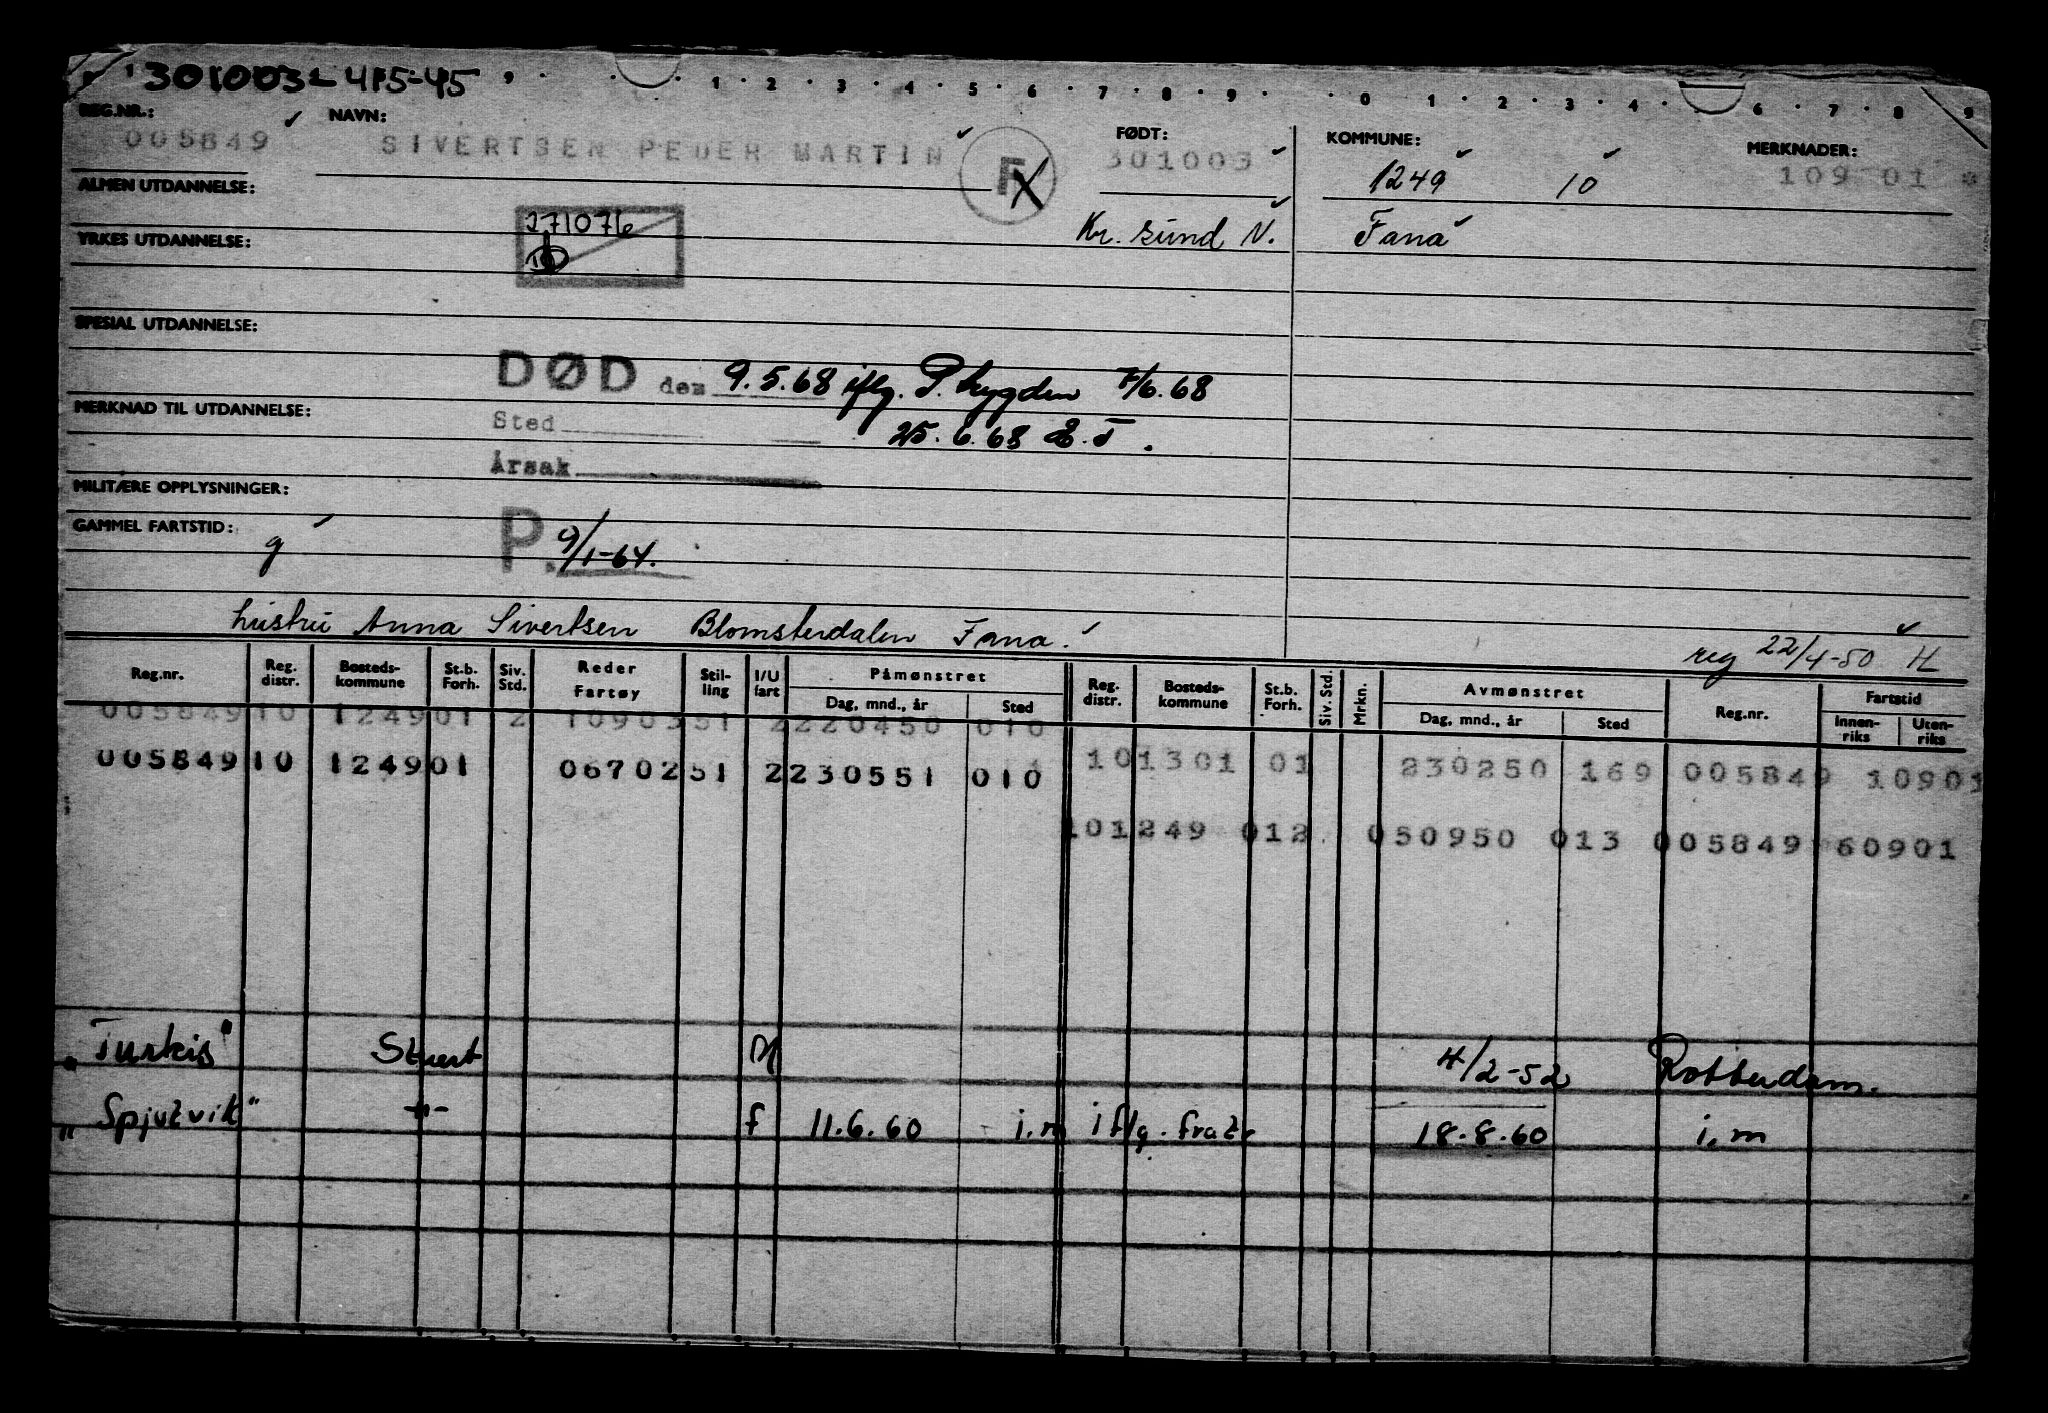 301003 - 415-45
1 2 3 4 5 6 7 8 9 0 1 2 3 4 6 7 8 9
REG.NR.: NAVN: FØDT: KOMMUNE: MERKNADER:
005849 SIVERTSEN PEDER MARTIN F X 301003 1249 10 109 01 *
ALMEN UTDANNELSE:
271076 Kr. sund N. Fana
YRKES UTDANNELSE:
SPESIAL UTDANNELSE:
DØD den 9.5.68 iflg. P. trygden 7/6.68
MERKNAD TIL UTDANNELSE:
Sted 25.6.68 E.T.
Årsak
MILITÆRE OPPLYSNINGER:
GAMMEL FARTSTID: g P. 9/1-64.
hustru Anna Sivertsen Blomsterdalen Fana.
reg 22/4-50 H
Reg.nr. Reg. distr. Bosteds-kommune St.b. Forh. Siv. Std. Reder Fartøy Stil-ling I/U fart Påmønstret Dag, mnd., år Sted Reg. distr. Bosteds-kommune St.b. Forh. Siv. Std. Mrkn. Avmønstret Dag, mnd., år Sted Reg.nr. Fartstid Innen-riks Uten-riks
005849 10 1249 01 2 10903 51 2 220450 010
005849 10 1249 01 06702 51 2 230551 010
10 1301 01 230250 169 005849 10901
10 1249 012 050950 013 005849 60901
"Turkis" Stuert M 4/2-52 Rotterdam.
"Spjutvik" -"- f 11.6.60 i.m iflg. fratr 18.8.60 i.m